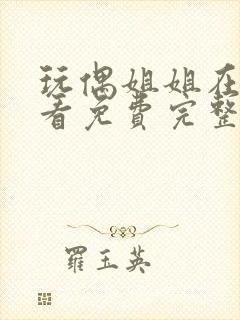 玩偶姐姐在
看免费完整
羅玉英